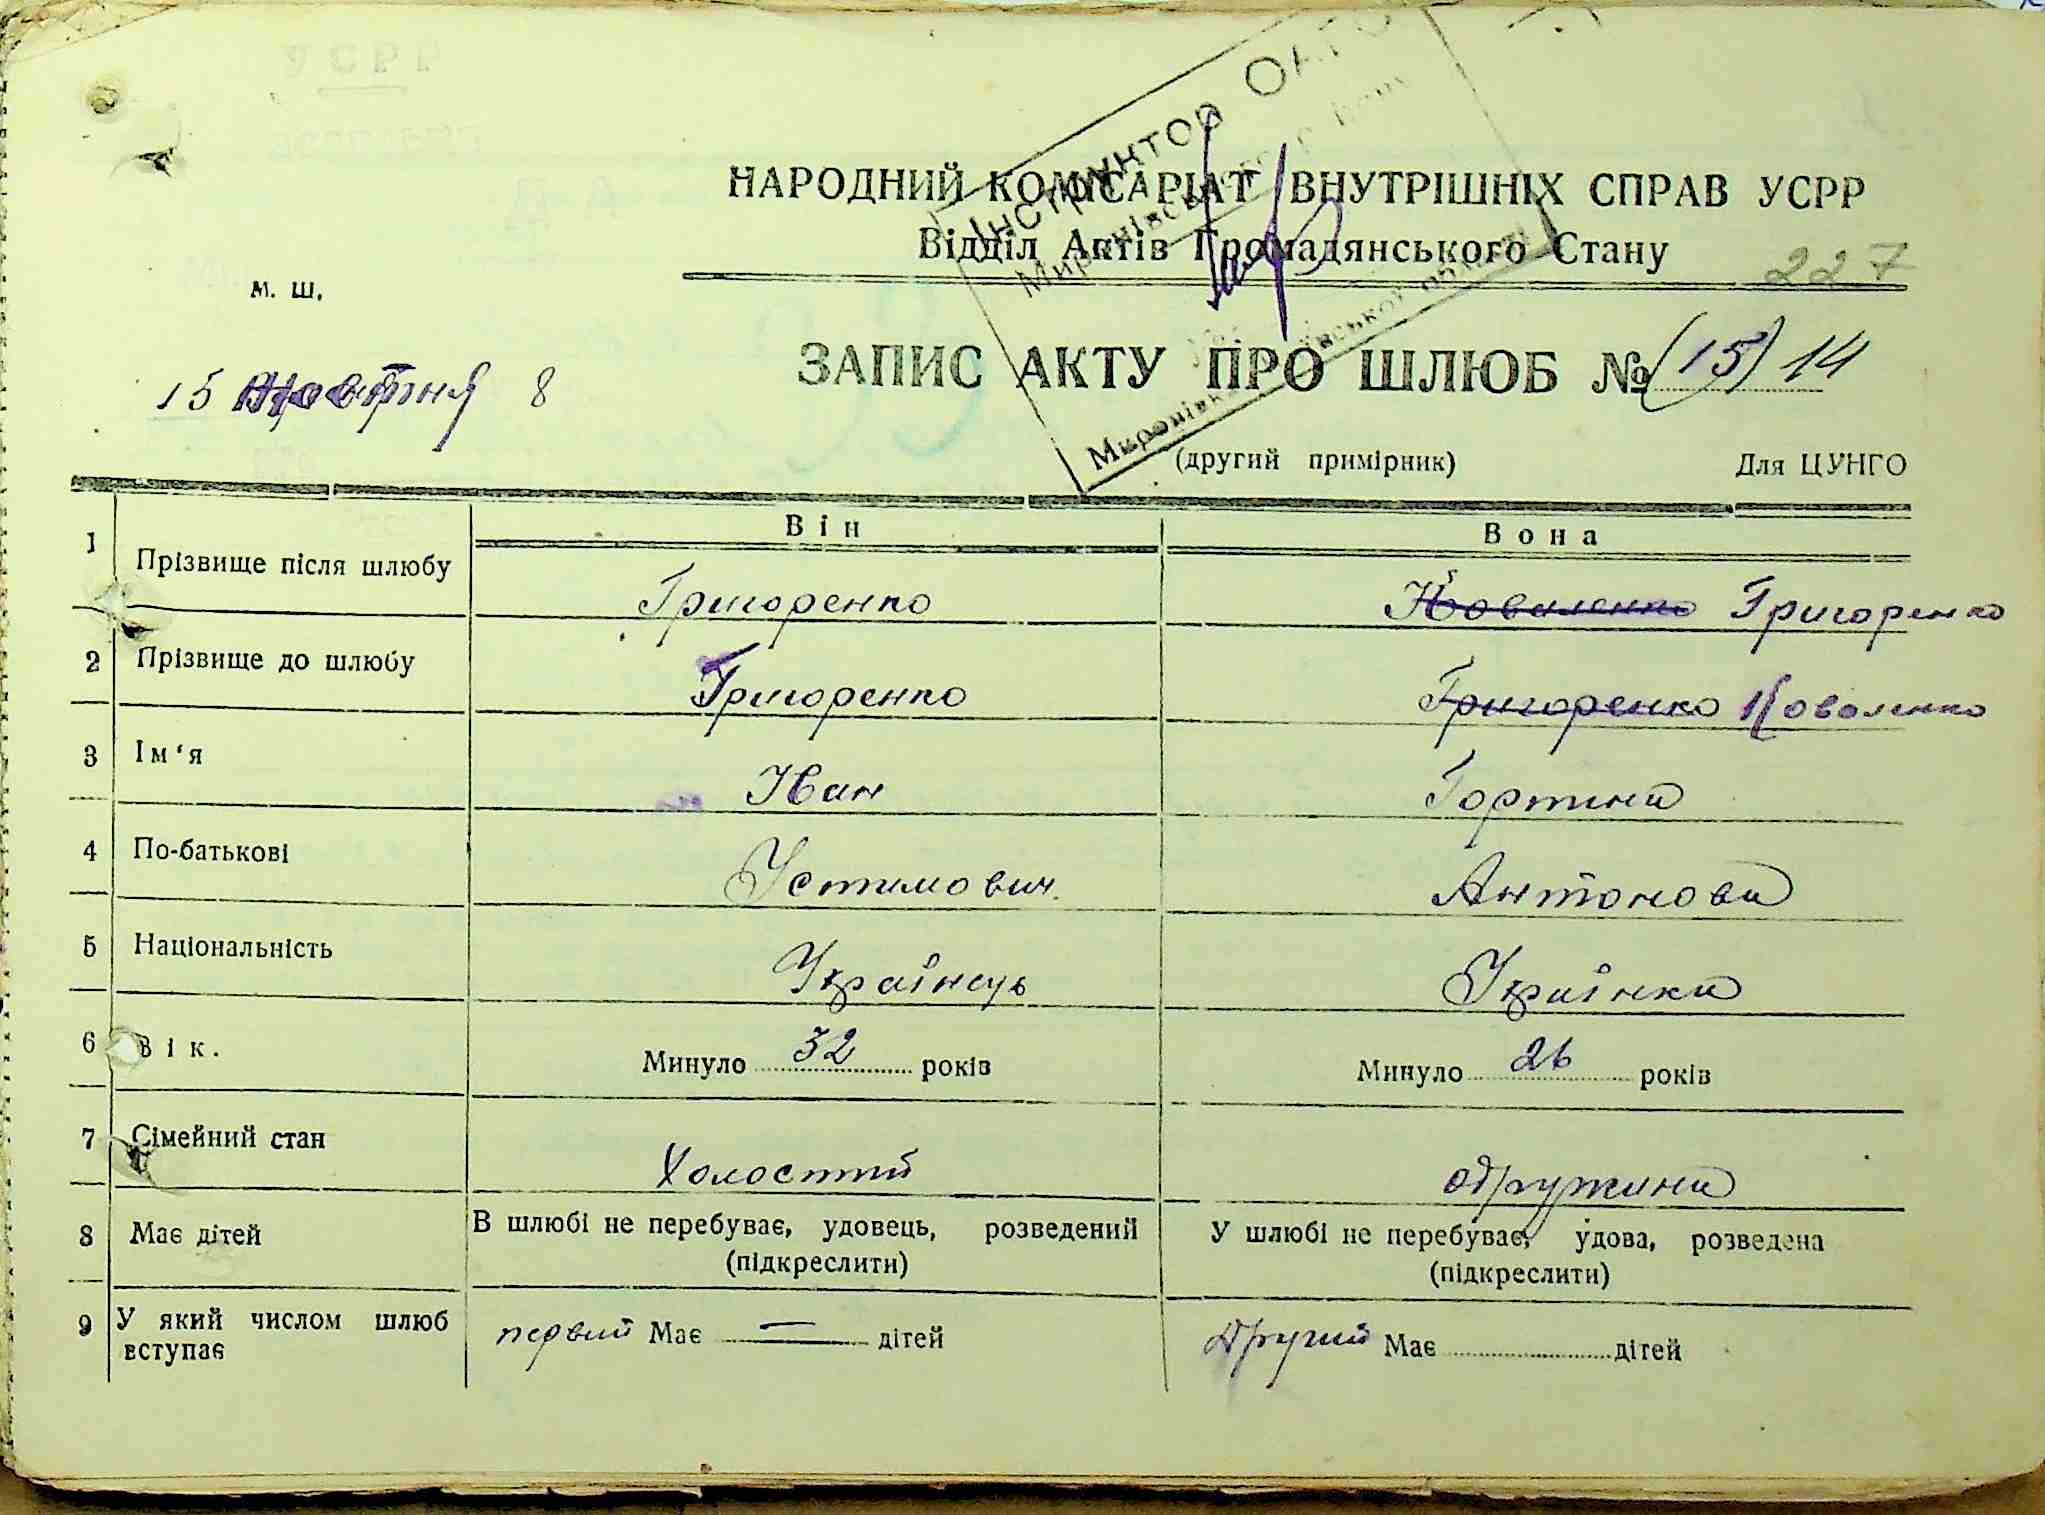 Інструктор ОАГС
НАРОДНИЙ КОМІСАРІАТ ВНУТРІШНІХ СПРАВ УСРР
Відділ Актів Громадянського Стану
227
м. ш.
ЗАПИС АКТУ ПРО ШЛЮБ № (15) 14
15 Жовтня 8
(другий примірник) Для ЦУНГО
Він Вона
1 Прізвище після шлюбу Григоренко Коваленко Григоренко
2 Прізвище до шлюбу Григоренко Григоренко Коваленко
3 Ім'я Іван Гортина
4 По-батькові Устимович Антонова
5 Національність Українець Українка
6 Вік. Минуло 32 років Минуло 26 років
7 Сімейний стан Холостий одружина
8 Має дітей В шлюбі не перебуває, удовець, розведений У шлюбі не перебуває, удова, розведена
(підкреслити) (підкреслити)
9 У який числом шлюб первий Має — дітей Другий Має дітей
вступає